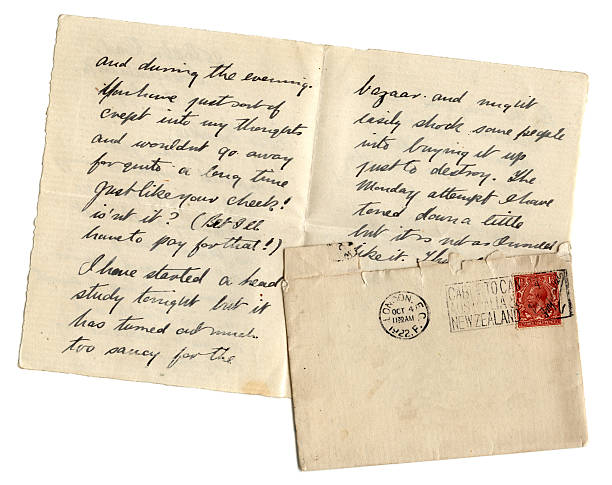 and during the evening.
You have just sort of
crept into my thoughts
and wouldnt go away
for quite a long time
Just like your cheek!
is'nt it? (Bet I'll
have to pay for that!)
I have started a head
study tonight but it
has turned out much
too saucy for the
bazaar. and might
easily shock some people
into buying it up
just to destroy. The
Monday attempt I have
toned down a little
but it is not as I would
like it. The
LONDON, E.C.
OCT 4
1922
CABLE TO CA
NEW ZEALAND